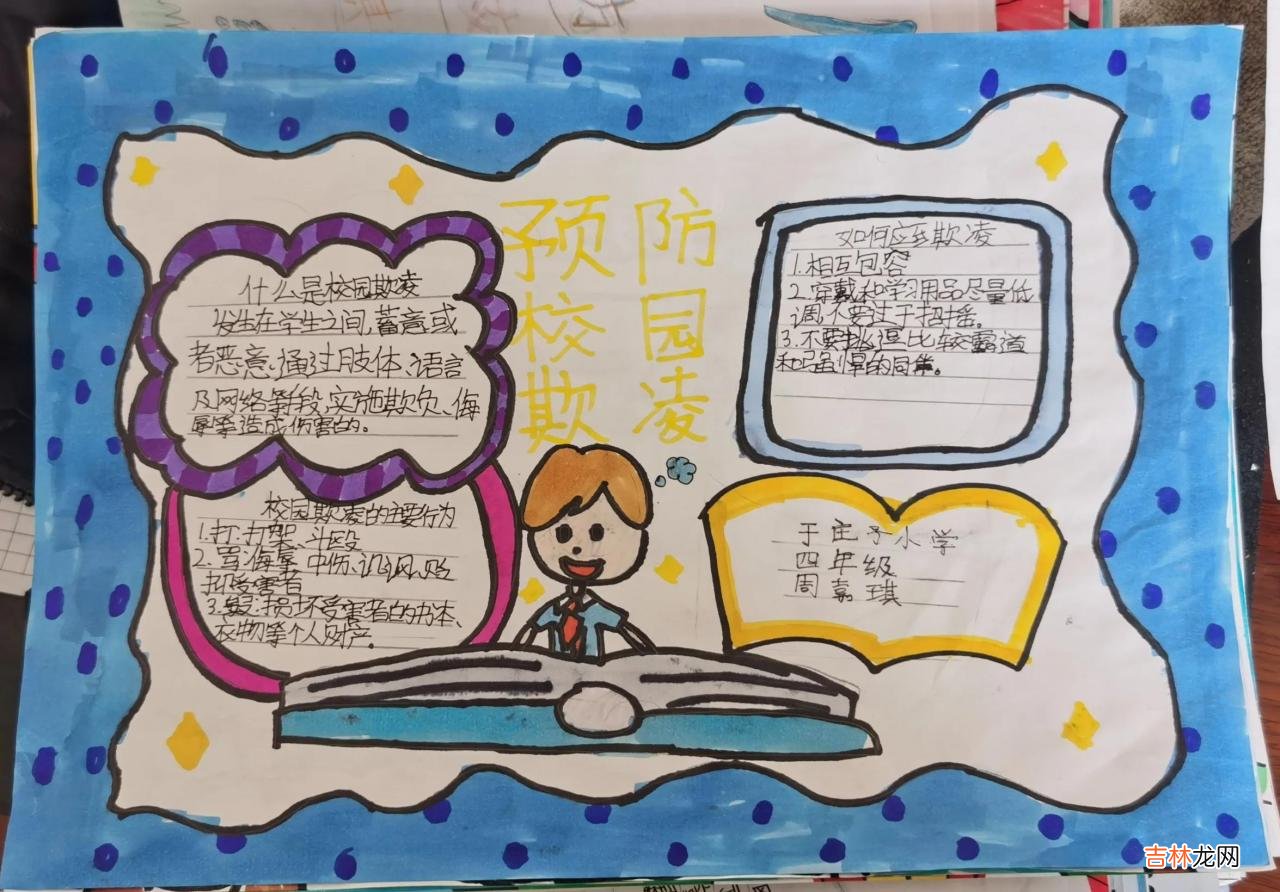 预防
校园
欺凌
什么是校园欺凌
发生在学生之间,蓄意或
者恶意通过肢体、语言
及网络等段,实施欺负、侮
辱等造成伤害的。
校园欺凌的主要行为
1.打:打架、斗殴
2.骂:侮辱、中伤、讥讽、贬
抑受害者
3.毁:损坏受害者的书本、
衣物等个人财产。
如何应对欺凌
1.相互包容
2.穿戴和学习用品尽量低
调,不要过于招摇。
3.不要挑逗比较霸道
和强悍的同学。
于庄子小学
四年级
周嘉琪
吉林龙网